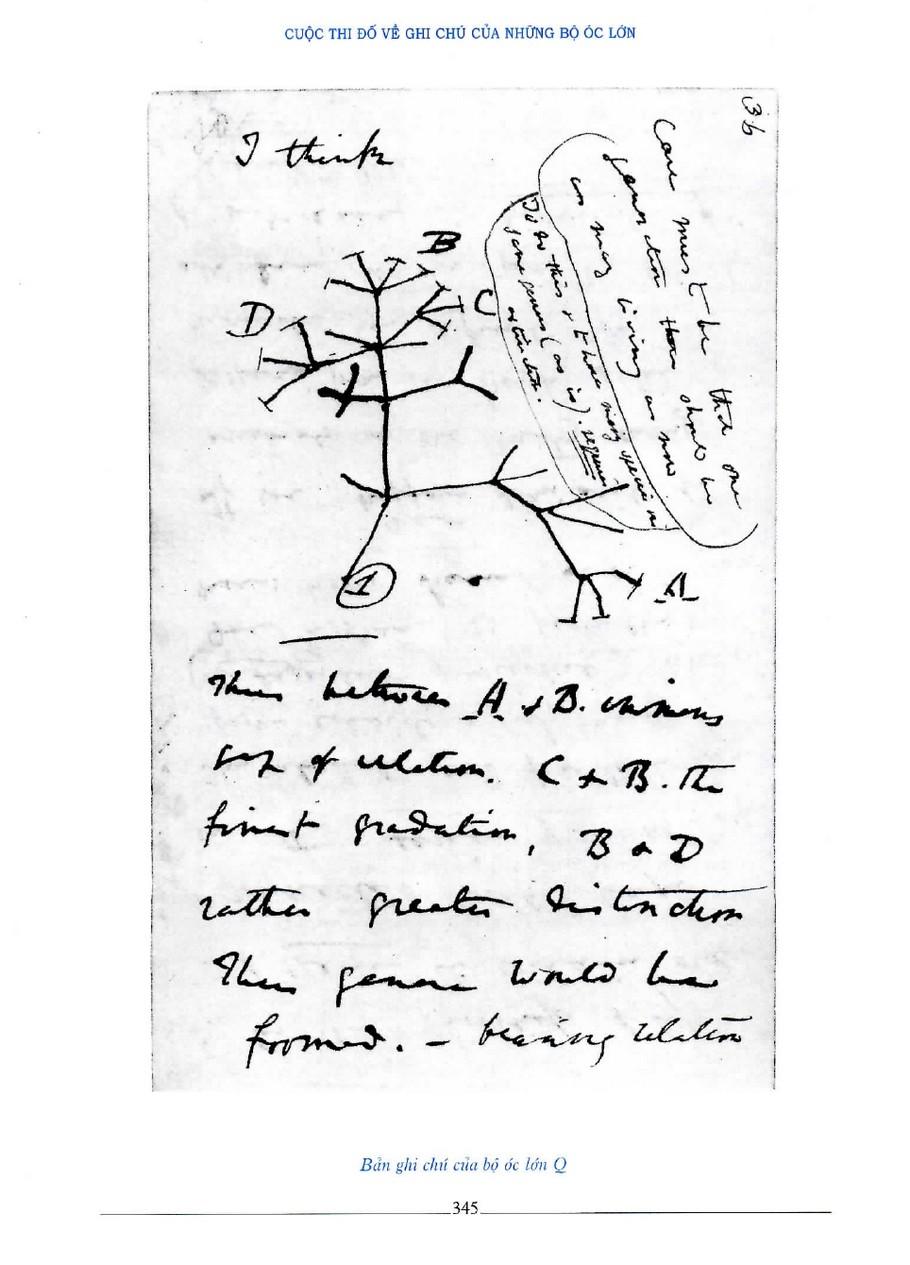 CUỘC THI ĐỐ VỀ GHI CHÚ CỦA NHỮNG BỘ ÓC LỚN
36
I think
Case must be that one
generation then should be
as many living as now
To do this & to have many species in
same genus (as is). requires
extinction.
B
D
C
A
1
Thus between A & B. immens
gap of relation. C & B. The
finest gradation, B & D
rather greater distinction
Thus genera would be
formed. — bearing relation
Bản ghi chú của bộ óc lớn Q
345